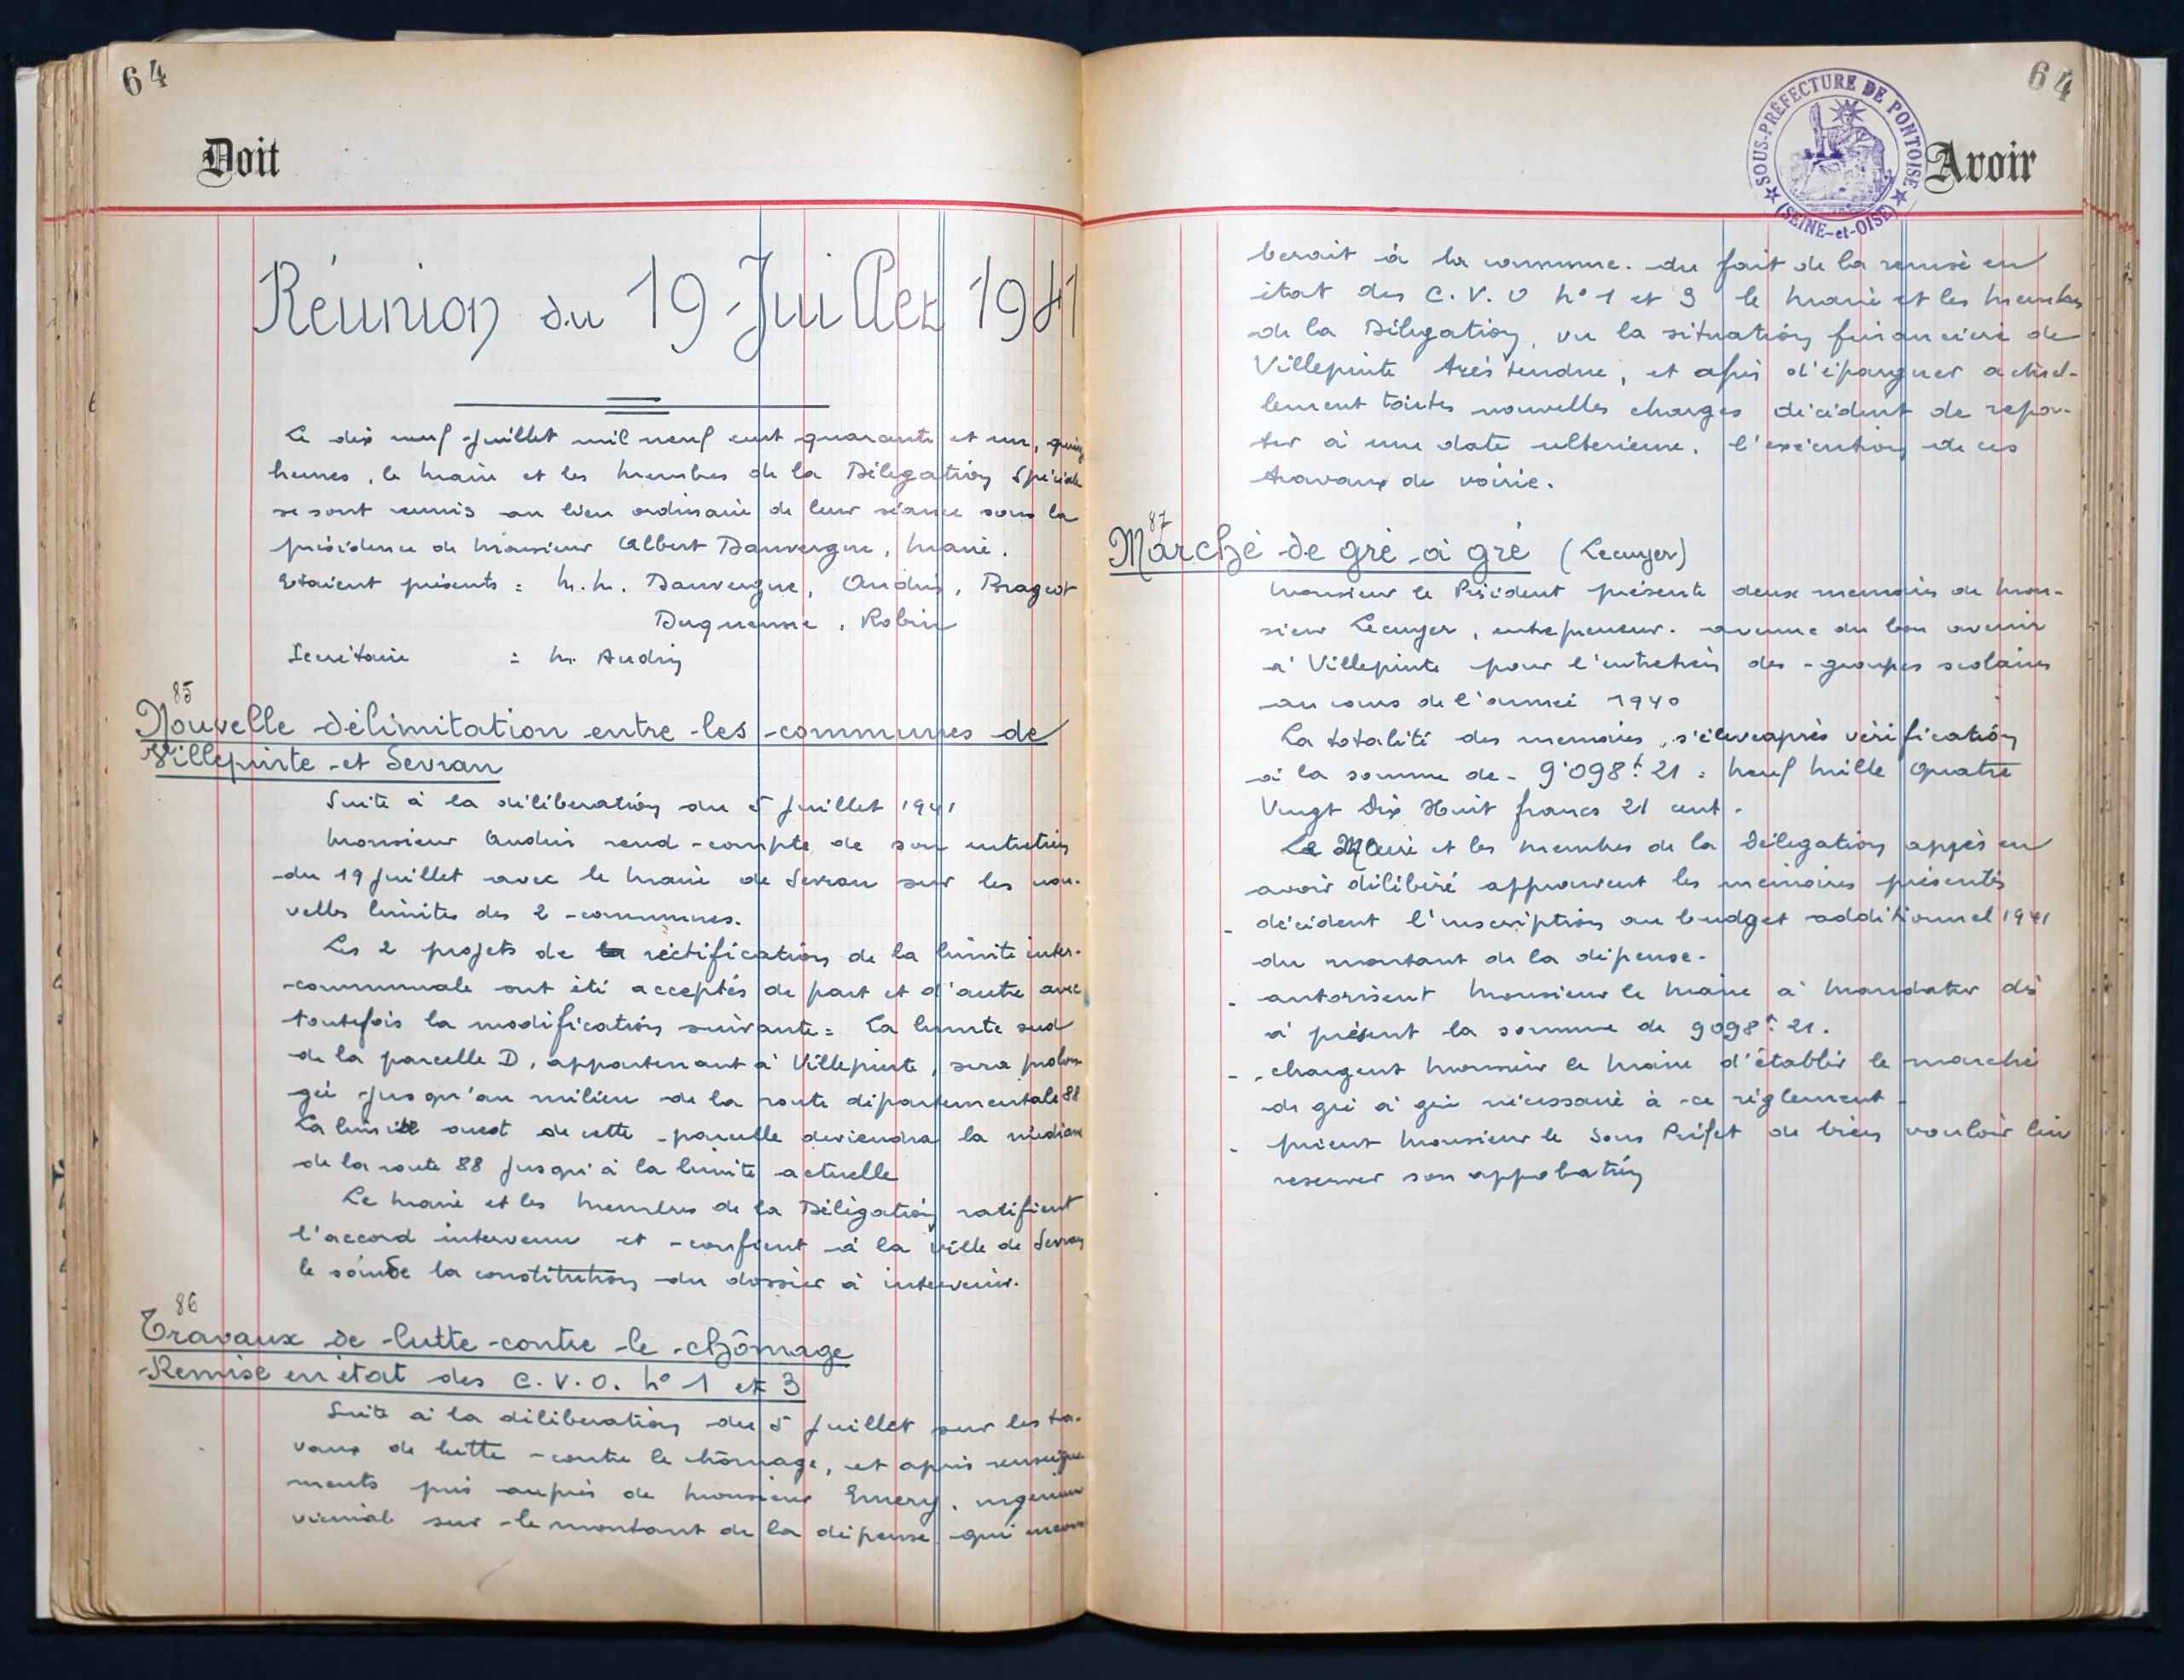 64
Doit
Réunion du 19 Juillet 1941
Le dix neuf Juillet mil neuf cent quarante et un,
heures, le Maire et les Membres de la Délégation Spéciale
se sont reunis au lieu ordinaire de leur séance sous la
présidence de Monsieur Albert Dauvergne, Maire.
Etaient présents : M.M. Dauvergne, Audin, Brageot
Duquenne, Robin
Secrétaire : M. Audin
85
Nouvelle délimitation entre les communes de
Villepinte et Sevran
Suite à la délibération du 5 Juillet 1941
Monsieur Audin rend compte de son entretien
du 19 Juillet avec le Maire de Sevran sur les nou-
velles limites des 2 communes.
Les 2 projets de la réctification de la limite inter-
communale ont été acceptés de part et d'autre avec
toutefois la modification suivante : La limite sud
de la parcelle D, appartenant à Villepinte, sera prolon
gée jusqu'au milieu de la route départementale 88
La limite ouest de cette parcelle deviendra la mediane
de la route 88 jusqu'à la limite actuelle
Le Maire et les Membres de la Délégation ratifient
l'accord intervenu et confient à la ville de Sevran
le soin de la constitution du dossier à intervenir.
86
Travaux de lutte contre le chômage
Remise en état des C.V.O. No 1 et 3
Suite à la délibération du 5 Juillet sur les tra-
vaux de lutte contre le chômage, et après renseigne
ments pris auprès de Monsieur Emery, ingenieur
vicinal sur le montant de la dépense qui incom
64
SOUS-PRÉFECTURE DE PONTOISE
(SEINE-et-OISE)
Avoir
berait à la commune. du fait de la remise en
état des C.V.O No 1 et 3 le Maire et les Membres
de la Délégation, vu la situation financière de
Villepinte très tendue, et afin d'épargner actuel-
lement toutes nouvelles charges décident de repor-
ter à une date ulterieure, l'exécution de ces
travaux de voirie.
87
Marché de gré à gré (Lecuyer)
Monsieur le Président présente deux memoires de Mon-
sieur Lecuyer, entrepreneur. avenue du bon avenir
à Villepinte pour l'entretien des groupes scolaires
au cours de l'année 1940
La totalité des memoires, s'élève après vérification
à la somme de - 9'098f 21 : Neuf Mille Quatre
Vingt Dix Huit francs 21 cent.
Le Maire et les membres de la Délégation après en
avoir délibéré approuvent les mémoires présentés
- décident l'inscription au budget additionnel 1941
du montant de la dépense.
- autorisent Monsieur le Maire à Mandater dès
à présent la somme de 9098f 21.
- chargent Monsieur le Maire d'établir le marché
de gré à gré nécessaire à ce réglement
- prient Monsieur le Sous Préfet de bien vouloir lui
reserver son approbation